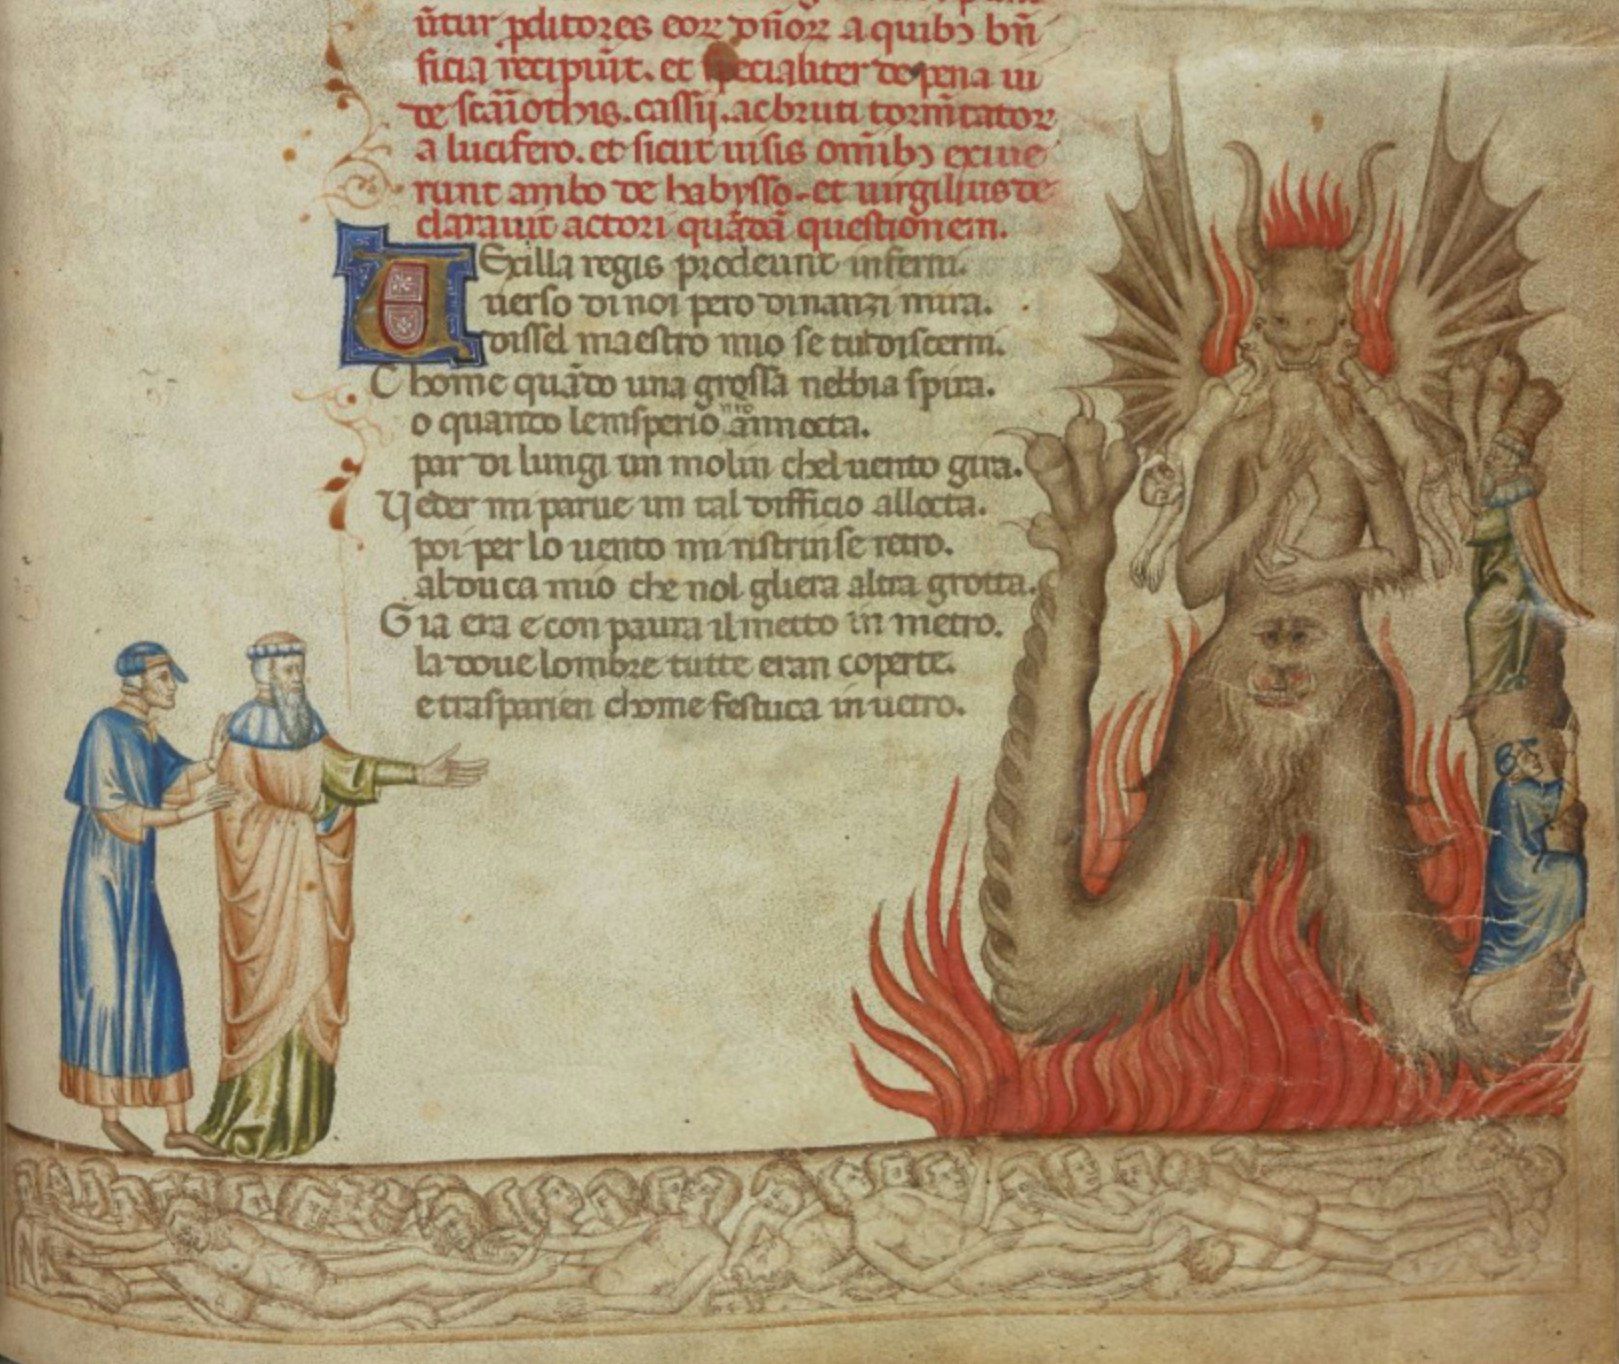 ūtur p̱ditores eoꝝ dn̄oꝝ a quibꝫ bn̄
ficia recipiūt. et specialiter de pena iu
de scaͥothis. cassij. ac bruti torm̄tatoꝝ
a lucifero. et sicut uisis om̄ibꝫ exiue
runt ambo de habysso. et uirgilius de
clarauit actori quādā questionem.
Uexilla regis prodeunt inferni.
uerso di noi pero dinanzi mira.
dissel maestro mio se tu discerni.
Chome quādo una grossa nebbia spira.
o quando lemisperio nr̄o annocta.
par di lungi un molin chel uento gira.
Ueder mi parue un tal difficio allocta.
poi per lo uento mi ristrinse retro.
al duca mio che nol gliera altra grotta.
Gia era e con paura il metto in metro.
la doue lombre tutte eran coperte.
e trasparien chome festuca in uetro.